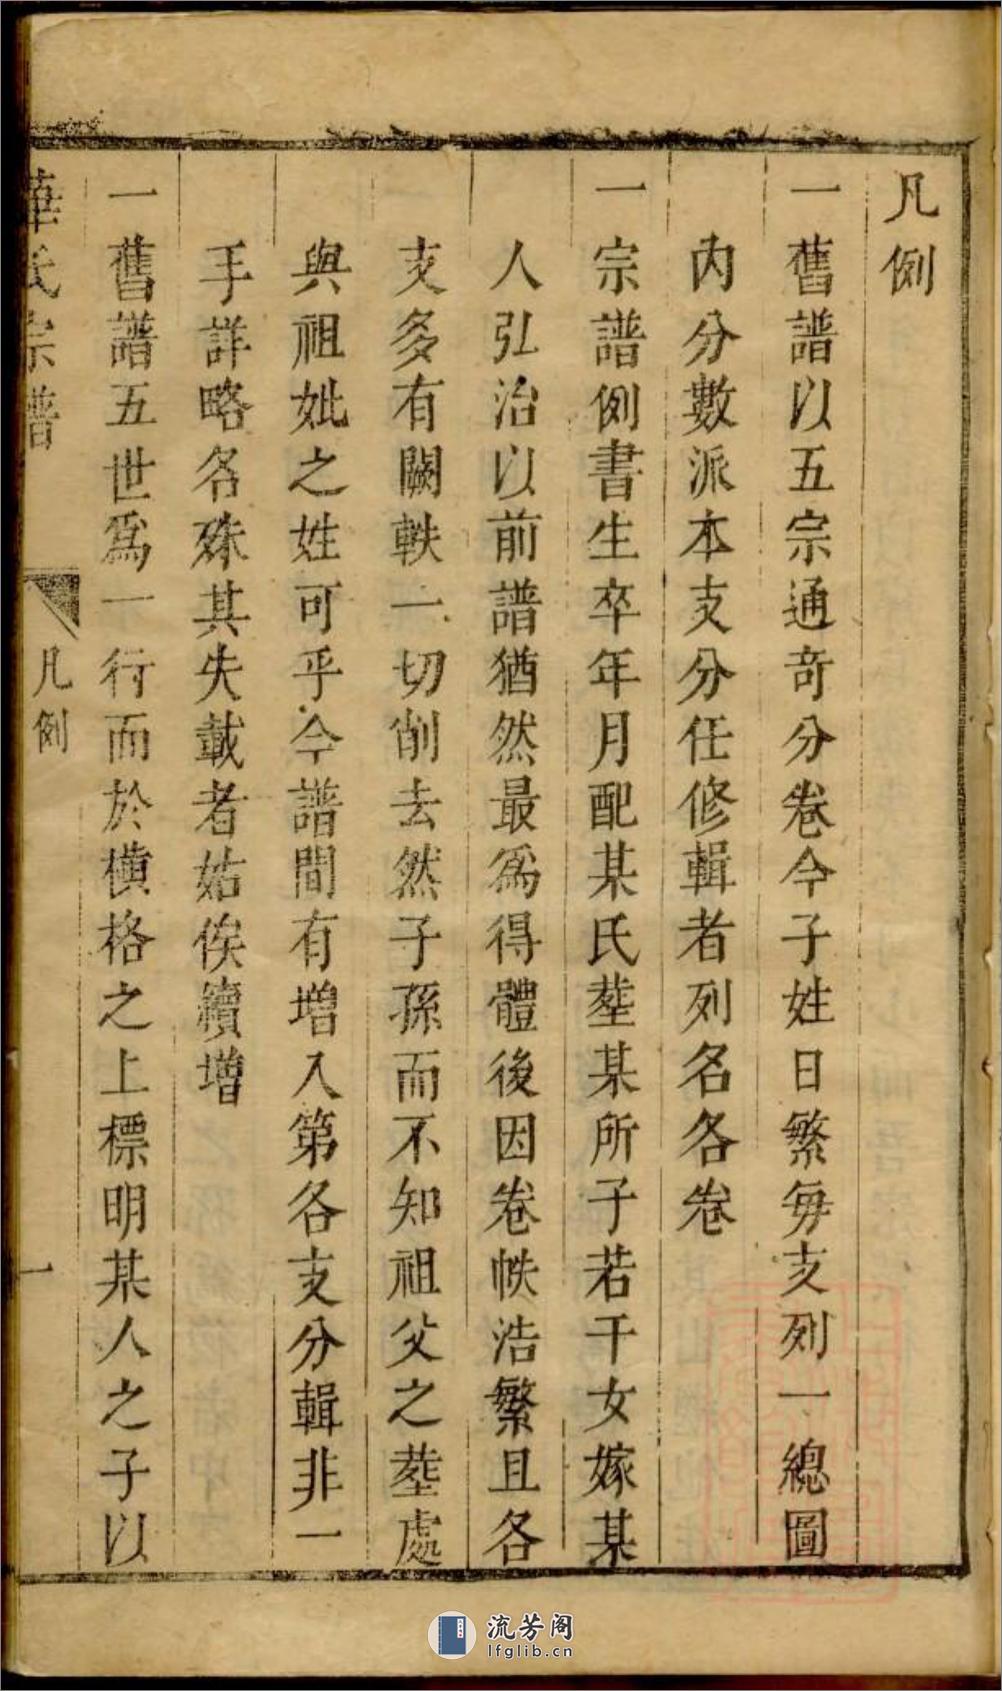 凡例
一舊譜以五宗通奇分卷今子姓日繁每支列一總圖
内分數派本支分任修輯者列名各卷
一宗譜例書生卒年月配某氏塟某所子若干女嫁某
人弘治以前譜猶然最爲得體後因卷帙浩繁且各
支多有闕軼一切削去然子孫而不知祖父之塟處
與祖妣之姓可乎今譜間有增入第各支分輯非一
手詳略各殊其失載者姑俟續增
一舊譜五世爲一行而於橫格之上標明某人之子以
華氏宗譜 凡例 一
流芳阁
lfglib.cn